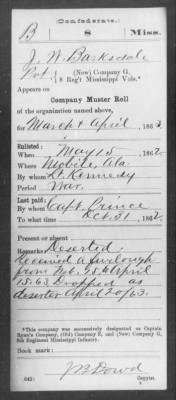 Confederate.
B 8 Miss.
J. W. Barksdale
Pvt., (New) Company G,
8 Reg't Mississippi Vols.*
Appears on
Company Muster Roll
of the organization named above,
for March & April, 1863.
Enlisted:
When May 15, 1862.
Where Mobile, Ala.
By whom Lt. Kennedy
Period War.
Last paid:
By whom Capt. Prince
To what time Oct. 31, 1862.
Present or absent
Remarks: Deserted.
Received a furlough
from Feb. 25 to April
15. 63. Dropped as
deserter April 20/63.
*This company was successively designated as Captain
Ryan's Company, (Old) Company E, and (New) Company G,
8th Regiment Mississippi Infantry.
Book mark:
(642)
J B Dowd
Copyist.